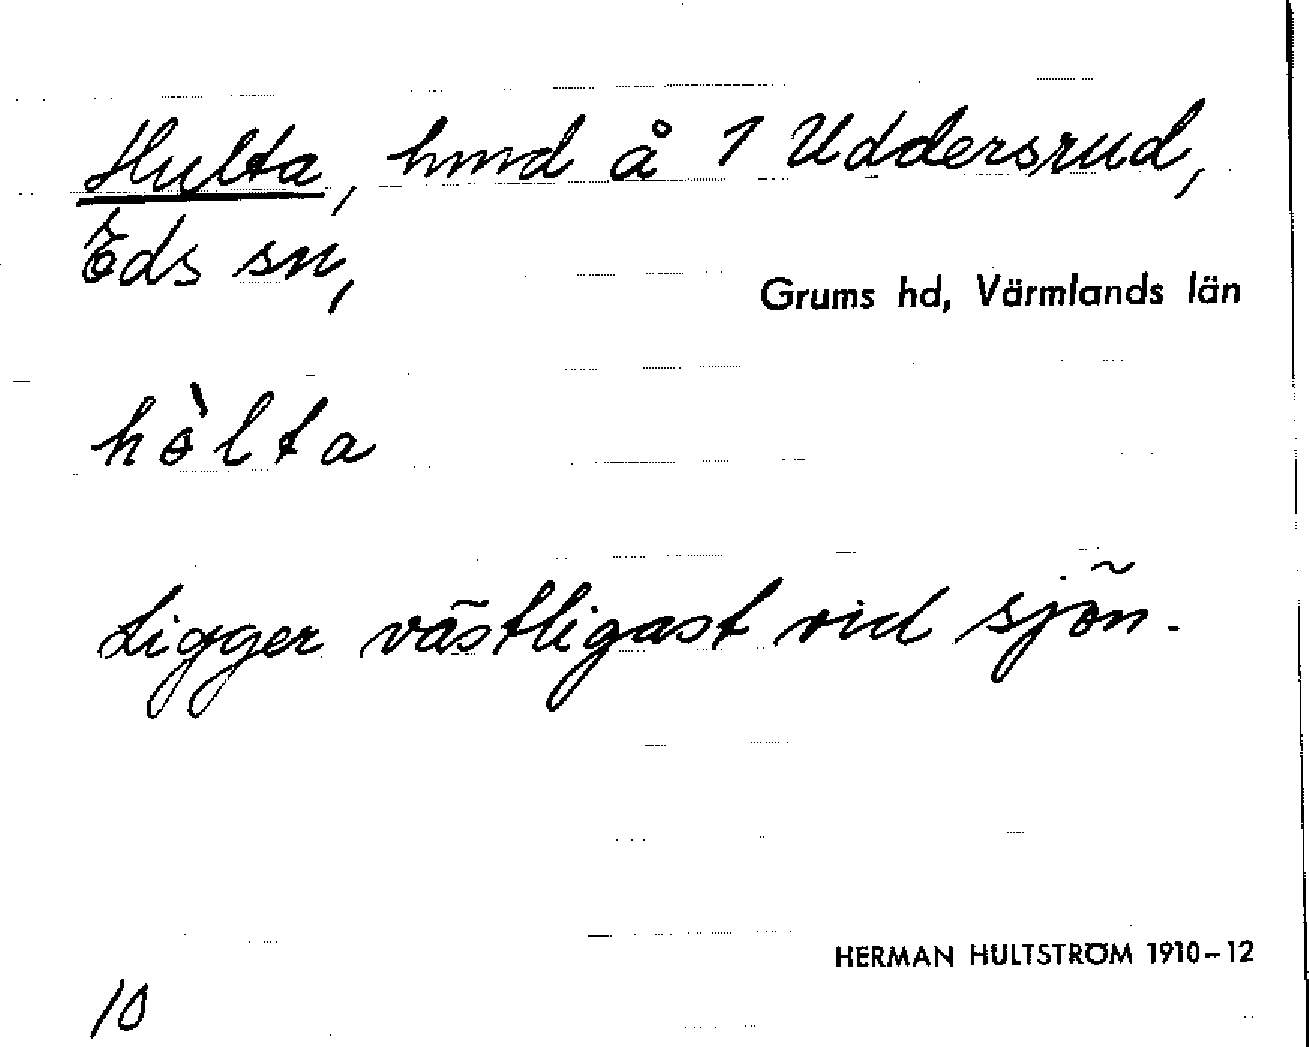 Hulta, hmd å 1 Uddersrud,
Eds sn,
Grums hd, Värmlands län
hòlta
Ligger västligast vid sjön.
HERMAN HULTSTRÖM 1910–12
10